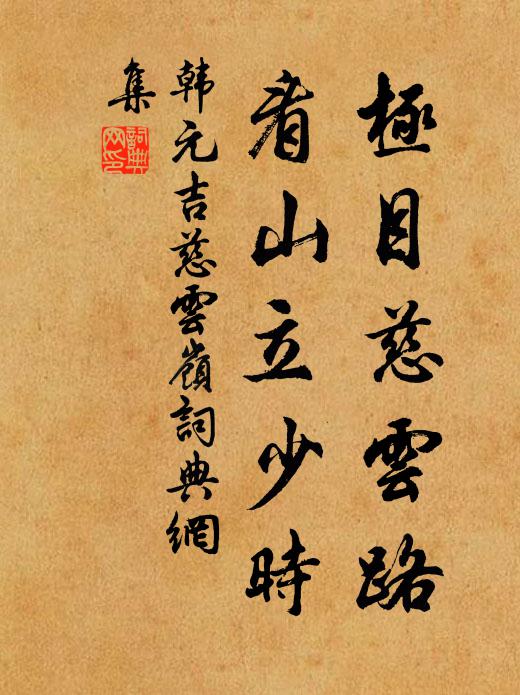 極目慈雲路
看山立少時
韩元吉慈雲嶺詞典網
集
詞典
网印